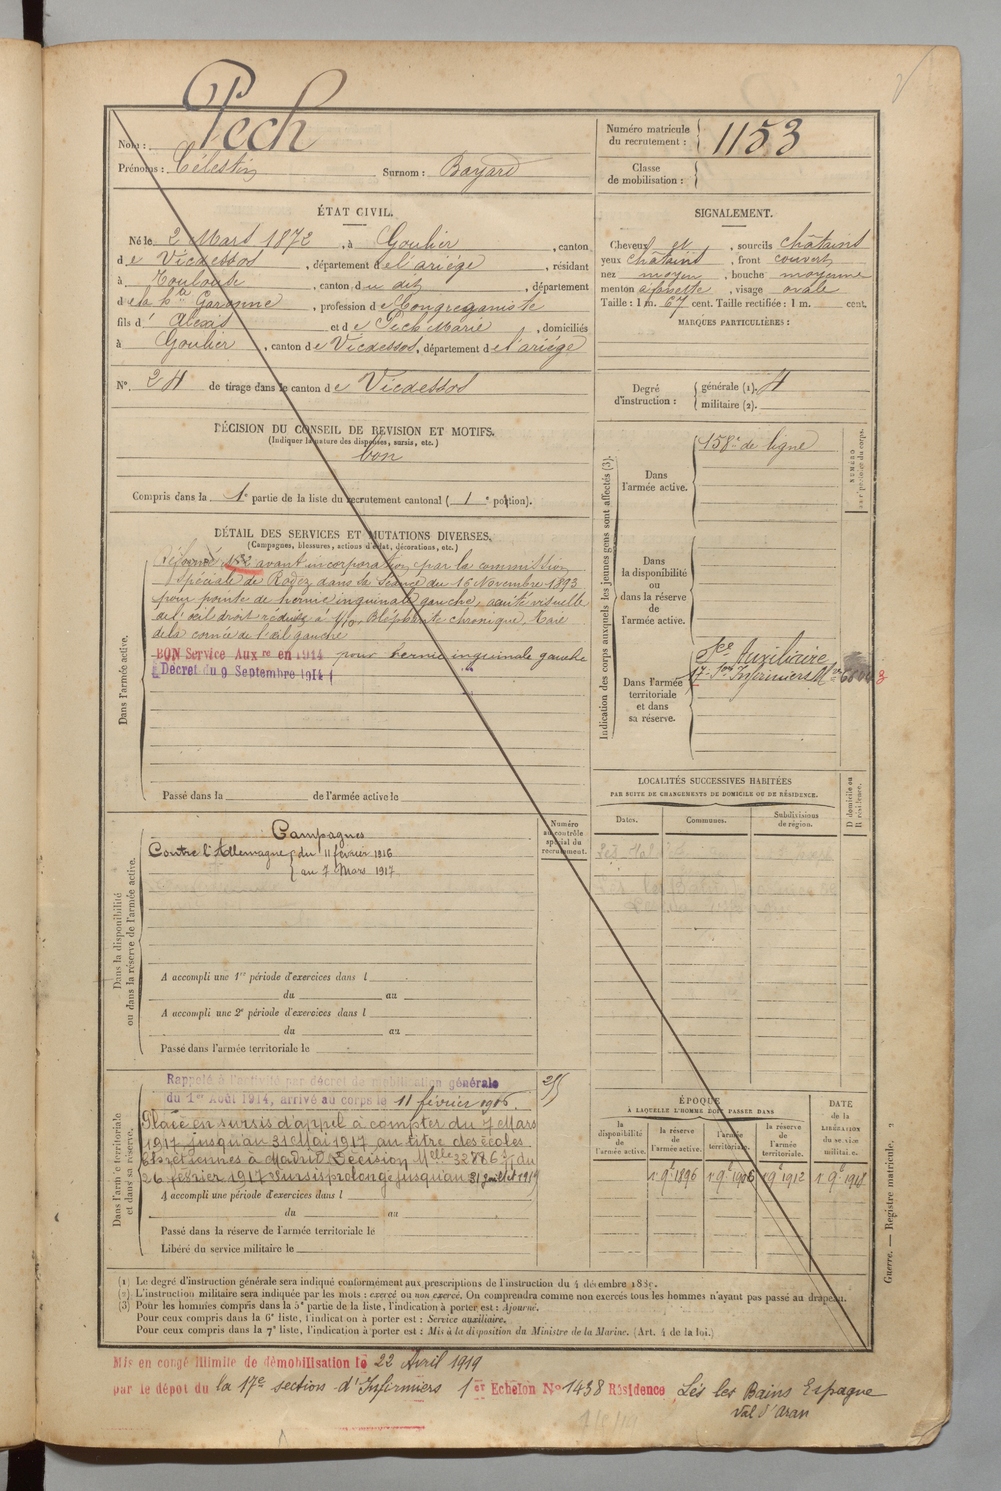 Nom : Pech
Prénoms : Célestin Surnom : Bayard
Numéro matricule du recrutement : 1153
Classe de mobilisation :
ÉTAT CIVIL.
Né le 2 Mars 1872, à Goulier, canton
de Vicdessos, département de l'ariège, résidant
à Toulouse, canton du dit, département
de la hte Garonne, profession de Congréganiste
fils d' Alexis et de Pech Marie, domiciliés
à Goulier, canton de Vicdessos, département de l'ariège
N° 24 de tirage dans le canton de Vicdessos
SIGNALEMENT.
Cheveux et, sourcils châtains
yeux châtains, front couvert
nez moyen, bouche moyenne
menton à fossette, visage ovale
Taille : 1 m. 67 cent. Taille rectifiée : 1 m. cent.
MARQUES PARTICULIÈRES :
Degré d'instruction : générale (1). 4
militaire (2).
DÉCISION DU CONSEIL DE REVISION ET MOTIFS.
(Indiquer la nature des dispenses, sursis, etc.)
bon
Compris dans la 1e partie de la liste du recrutement cantonal ( 1 e portion).
DÉTAIL DES SERVICES ET MUTATIONS DIVERSES.
(Campagnes, blessures, actions d'éclat, décorations, etc.)
Dans l'armée active.
Réformé avant incorporation par la commission
spéciale de Rodez dans sa séance du 16 Novembre 1893
pour pointe de hernie inguinale gauche, acuité visuelle
de l'œil droit réduite à 4/10, Blépharite chronique, Taie
de la cornée de l'œil gauche
BON Service Auxre en 1914 pour hernie inguinale gauche
Décret du 9 Septembre 1914
Passé dans la de l'armée active le
Indication des corps auxquels les jeunes gens sont affectés (3).
NUMÉRO
Dans l'armée active. 158e de ligne
Dans la disponibilité ou dans la réserve de l'armée active.
Dans l'armée territoriale et dans sa réserve.
Sce Auxiliaire
17e Son Infirmiers
LOCALITÉS SUCCESSIVES HABITÉES
PAR SUITE DE CHANGEMENTS DE DOMICILE OU DE RÉSIDENCE.
Dates. Communes. Subdivisions de région. D domicile ou R résidence.
Dans la disponibilité ou dans la réserve de l'armée active.
Numéro au contrôle spécial du recrutement.
Campagnes
Contre l'Allemagne du 11 février 1916
au 7 Mars 1917.
A accompli une 1re période d'exercices dans l
du au
A accompli une 2e période d'exercices dans l
du au
Passé dans l'armée territoriale le
Dans l'armée territoriale et dans sa réserve.
Rappelé à l'activité par décret de mobilisation générale
du 1er Août 1914, arrivé au corps le 11 février 1916.
Placé en sursis d'appel à compter du 7 Mars
1917 jusqu'au 31 Mai 1917 au titre des écoles
Chrétiennes à Madrid Décision Melle 32886 du
26 février 1917 Sursis prolongé jusqu'au 31 Juillet 1919
A accompli une période d'exercices dans l
du au
Passé dans la réserve de l'armée territoriale le
Libéré du service militaire le
ÉPOQUE
À LAQUELLE L'HOMME DOIT PASSER DANS
la disponibilité de l'armée active. la réserve de l'armée active. l'armée territoriale. la réserve de l'armée territoriale. DATE de la LIBÉRATION du service militaire.
1 9e 1896 1 9e 1906 1 9e 1912 1 9e 1918
Guerre. — Registre matricule. 2
(1) Le degré d'instruction générale sera indiqué conformément aux prescriptions de l'instruction du 4 décembre 1889.
(2) L'instruction militaire sera indiquée par les mots : exercé ou non exercé. On comprendra comme non exercés tous les hommes n'ayant pas passé au drapeau.
(3) Pour les hommes compris dans la 5e partie de la liste, l'indication à porter est : Ajourné.
Pour ceux compris dans la 6e liste, l'indication à porter est : Service auxiliaire.
Pour ceux compris dans la 7e liste, l'indication à porter est : Mis à la disposition du Ministre de la Marine. (Art. 4 de la loi.)
Mis en congé illimité de démobilisation le 22 Avril 1919
par le dépôt du la 17e section d'Infirmiers 1er Echelon No 1438 Résidence Lés les Bains Espagne
Val d'Aran